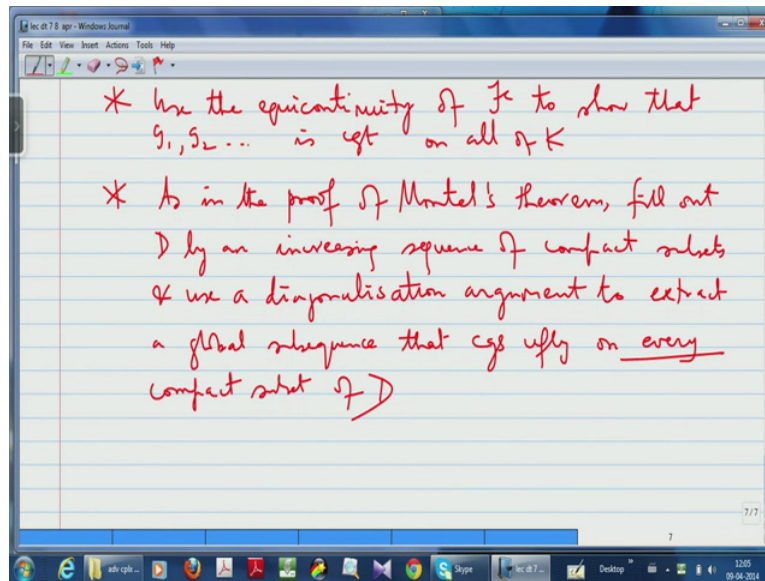 lec dt 7 8 apr - Windows Journal
File Edit View Insert Actions Tools Help
* Use the equicontinuity of F to show that
g₁, g₂ ... is cgt on all of K
* As in the proof of Montel's theorem, fill out
D by an increasing sequence of compact subsets
& use a diagonalisation argument to extract
a global subsequence that cgs ufly on every
compact subset of D
7/7
7
adv cplx...
Skype
lec dt 7...
Desktop
12:05
09-04-2014